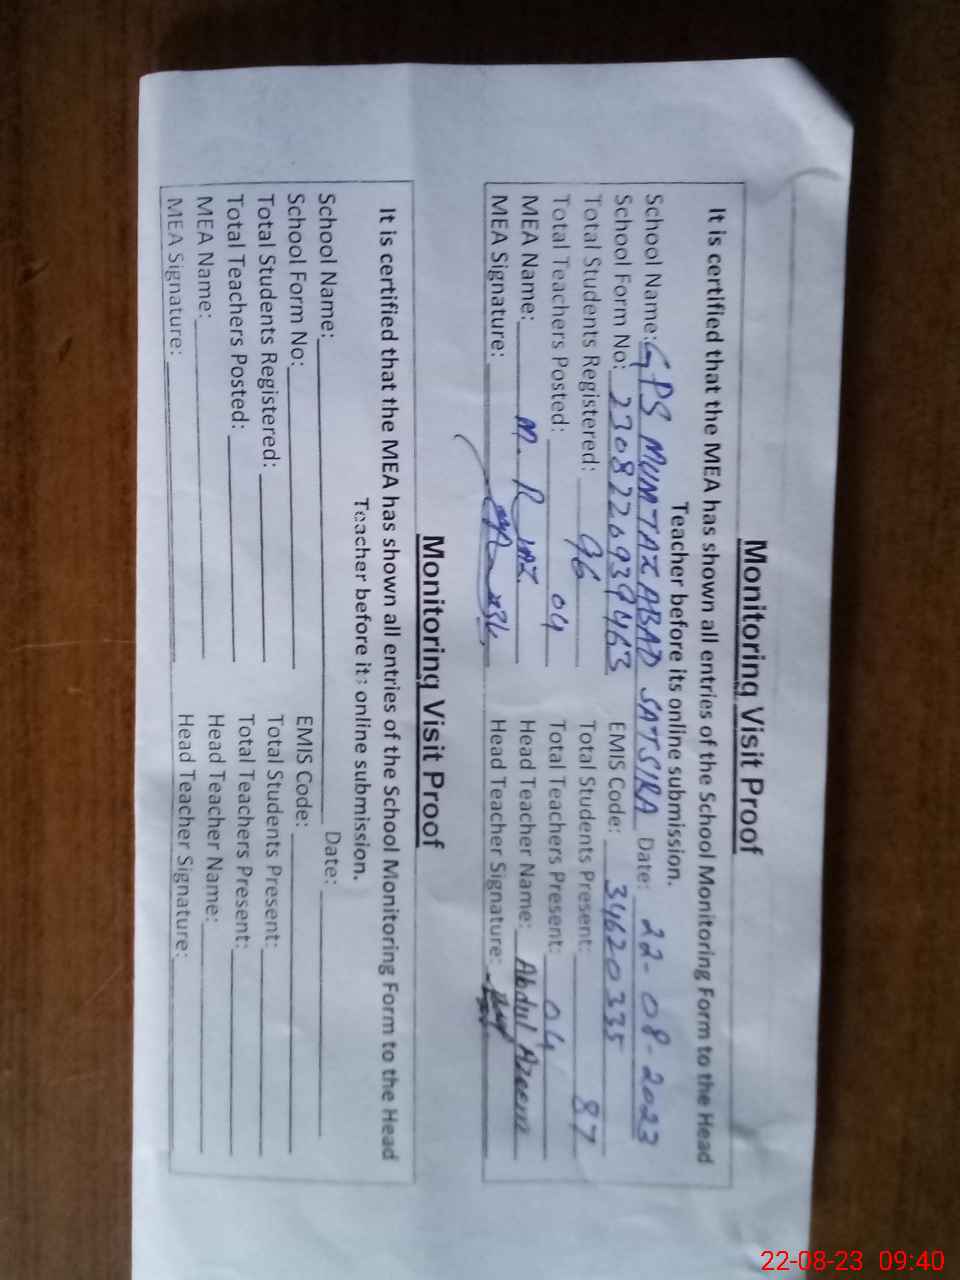 Monitoring Visit Proof
It is certified that the MEA has shown all entries of the School Monitoring Form to the Head
Teacher before its online submission.
School Name: GPS MUMTAZABAD SATSIRA Date: 22-08-2023
School Form No: 2308226939463 EMIS Code: 34620335
Total Students Registered: 96 Total Students Present: 87
Total Teachers Posted: 04 Total Teachers Present: 04
MEA Name: M. R Head Teacher Name: Abdul Azeem
MEA Signature: Head Teacher Signature:
Monitoring Visit Proof
It is certified that the MEA has shown all entries of the School Monitoring Form to the Head
Teacher before its online submission.
School Name: Date:
School Form No: EMIS Code:
Total Students Registered: Total Students Present:
Total Teachers Posted: Total Teachers Present:
MEA Name: Head Teacher Name:
MEA Signature: Head Teacher Signature:
22-08-23 09:40